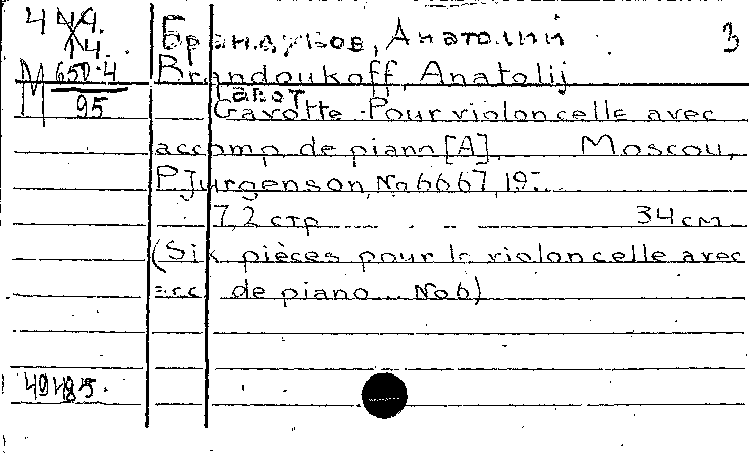 Брандуков, Анатолий 3
Brandoukoff, Anatolij
М 650-4
95
Гавот
Gavotte Pour violoncelle avec
accomp. de piano [A]. Moscou,
P. Jurgenson, No 6667, 19-
7, 2 стр 34 см
(Six pièces pour le violoncelle avec
acc de piano... No 6)